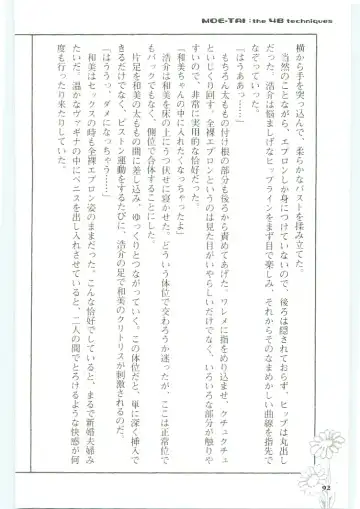 MOE-TAI : the 48 techniques
横から手を突っ込んで、柔らかなバストを揉み立てた。
　当然のことながら、エプロンしか身につけていないので、後ろは隠されておらず、ヒップは丸出し
だった。浩介は悩ましげなヒップラインをまず目で楽しみ、それからそのなまめかしい曲線を指先で
なぞっていった。
「はうああっ……」
　もちろん太ももの付け根の部分も後ろから責めてあげた。ワレメに指をめり込ませ、クチュクチュ
といじくり回す。全裸エプロンというのは見た目がいやらしいだけでなく、いろいろな部分が触りや
すいので、非常に実用的な恰好だった。
「和美ちゃんの中に入れたくなっちゃったよ」
　浩介は和美を床の上にうつ伏せに寝かせた。どういう体位で交わろうか迷ったが、ここは正常位で
もバックでもなく、側位で合体することにした。
　片足を和美の太ももの間に差し込み、ゆっくりとつながっていく。この体位だと、単に深く挿入で
きるだけでなく、ピストン運動をするたびに、浩介の足で和美のクリトリスが刺激されるのだ。
「はううっ、ダメになっちゃう……」
　和美はセックスの時も全裸エプロン姿のままだった。こんな恰好でしていると、まるで新婚夫婦み
たいだ。温かなヴァギナの中にペニスを出し入れさせていると、二人の間でとろけるような快感が何
度も行ったり来たりしていた。
92